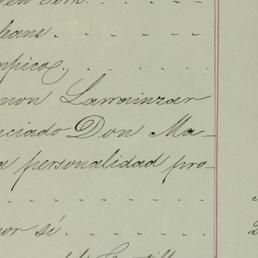 leans. . . . . .
mpico,. . . . .
mon Larrainzar
nciado Don Ma-
a personalidad pro-
. . . . . .
por sí. . . . . .